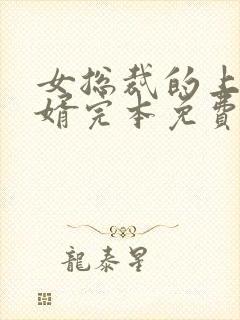 女总裁的上
婿完本免费
龍泰星